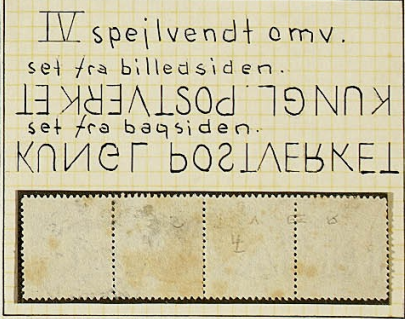 IV spejlvendt omv.
set fra billedsiden.
KUNGL. POSTVERKET
set fra bagsiden.
KUNGL POSTVERKET